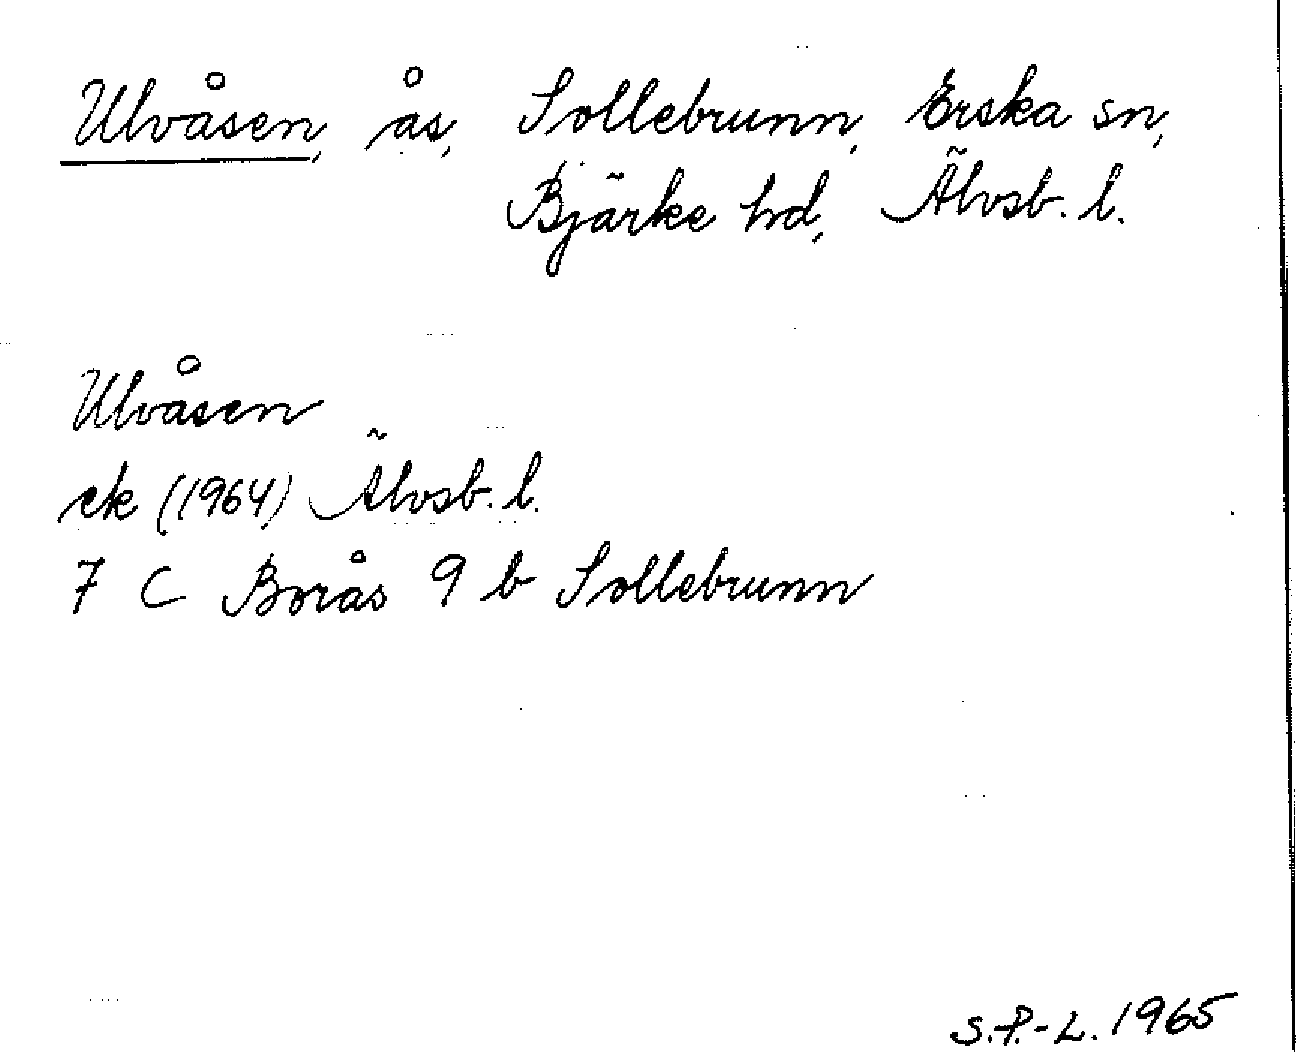 Ulvåsen, ås, Sollebrunn, Erska sn,
Bjärke hd, Älvsb. l.
Ulvåsen
ek (1964) Älvsb. l.
7 C Borås 9 b Sollebrunn
S.P.-L. 1965